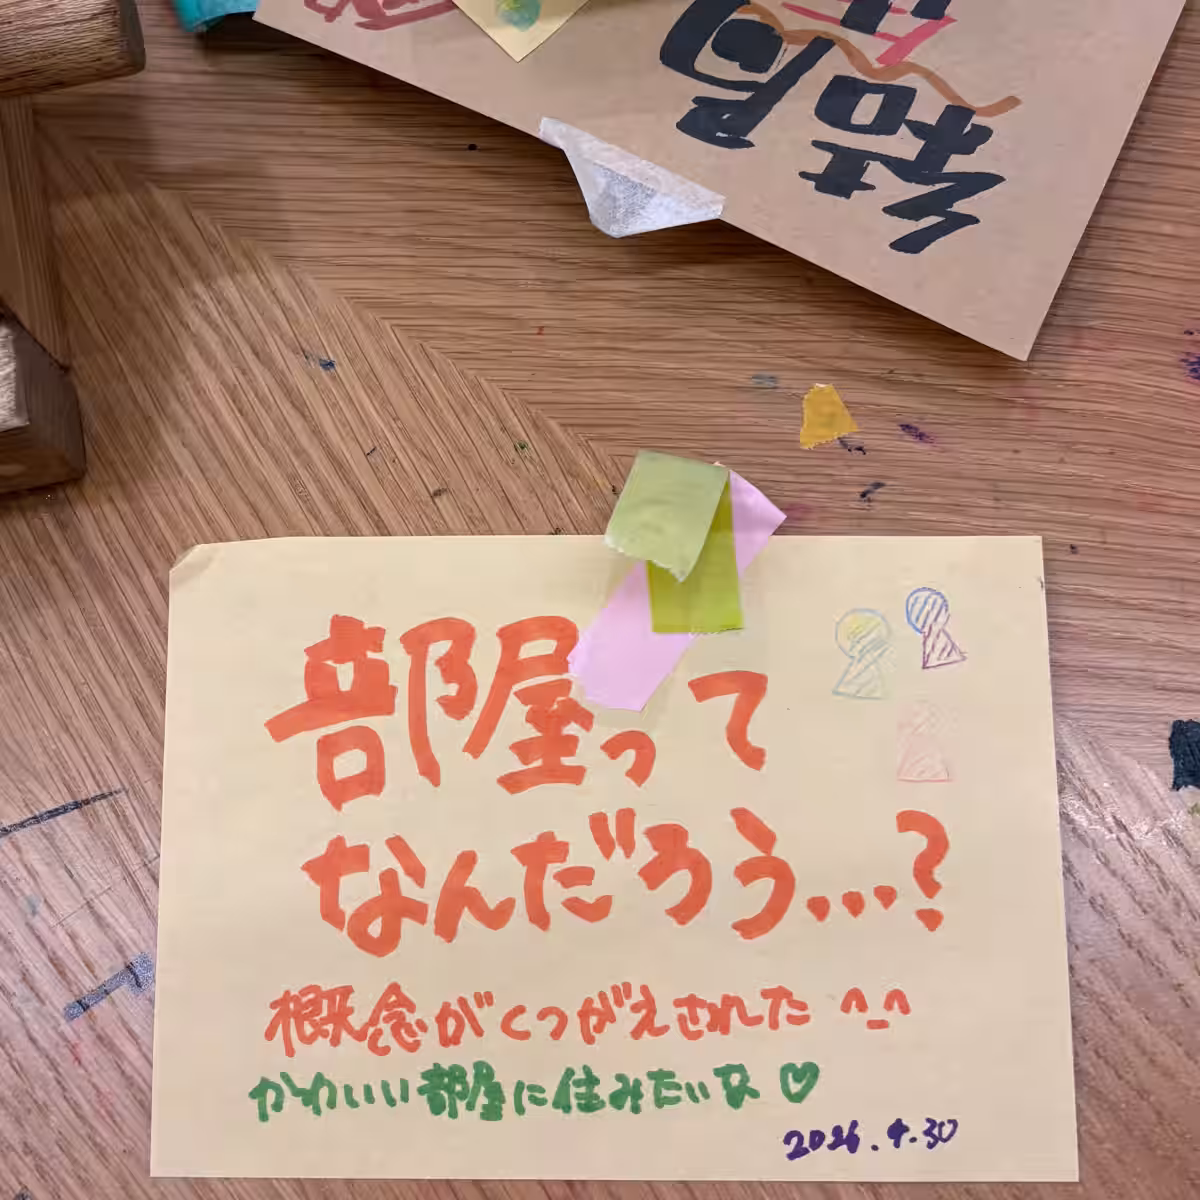 結局
部屋って
なんだろう…?
概念がくつがえされた ^_^
かわいい部屋に住みたいな ♡
2026.4.30